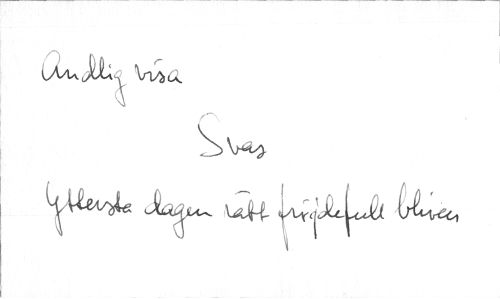 Andlig visa
Svas
Yttersta dagen rätt fröjdefull bliver